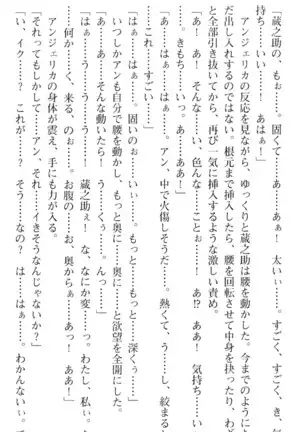 「蔵之助の、もっ……ああ！　太い……。すごく、すごく、き
持ち……いい！　あはぁ！」
アンジェリカの反応を見ながら、ゆっくりと蔵之助は腰を動かした。今までのように
だ出し入れするのではない。根元まで挿入したら、腰を回転させて中身を抉ったり、わざ
と全部引き抜いてから、再び一気に挿入するような激しい責め。
「あ！　あぁ！　そんな、いい、色んな……ことぉ……！　あ!?　ああ！　気持ち……い
……。きもち……いっ。あ……ああ！」
「あ……はぁ……はぁ……。アン、中で火傷しそうだ……。熱くて、う……し、絞まる
「これ……すごい……」
「はぁ……はぁ……。固いのぉ……いぃ……。もっと、もっと……深くぅ……」
いつしかアンも自分で腰を動かし、もっと奥に……奥に……と欲望を全開にした。
「あ……ぅ……そんな動いたら！　う……くぅ……んっ……」
「はぁ……！　う……う……う！　蔵之助ぇ！　な、なにか変……っ。わたし、私ぃ。
……何か……く、来る、のぉ……。お腹の……お、奥からぁ……あっ！　ああ！」
アンジェリカの身体が震え、手にも力が入る。
「それってもしかして……アン、それ……イきそうなんじゃないか？」
「い、イク……？　これが……？　そう……なの？　はぁ……！　わかんないぃ。で